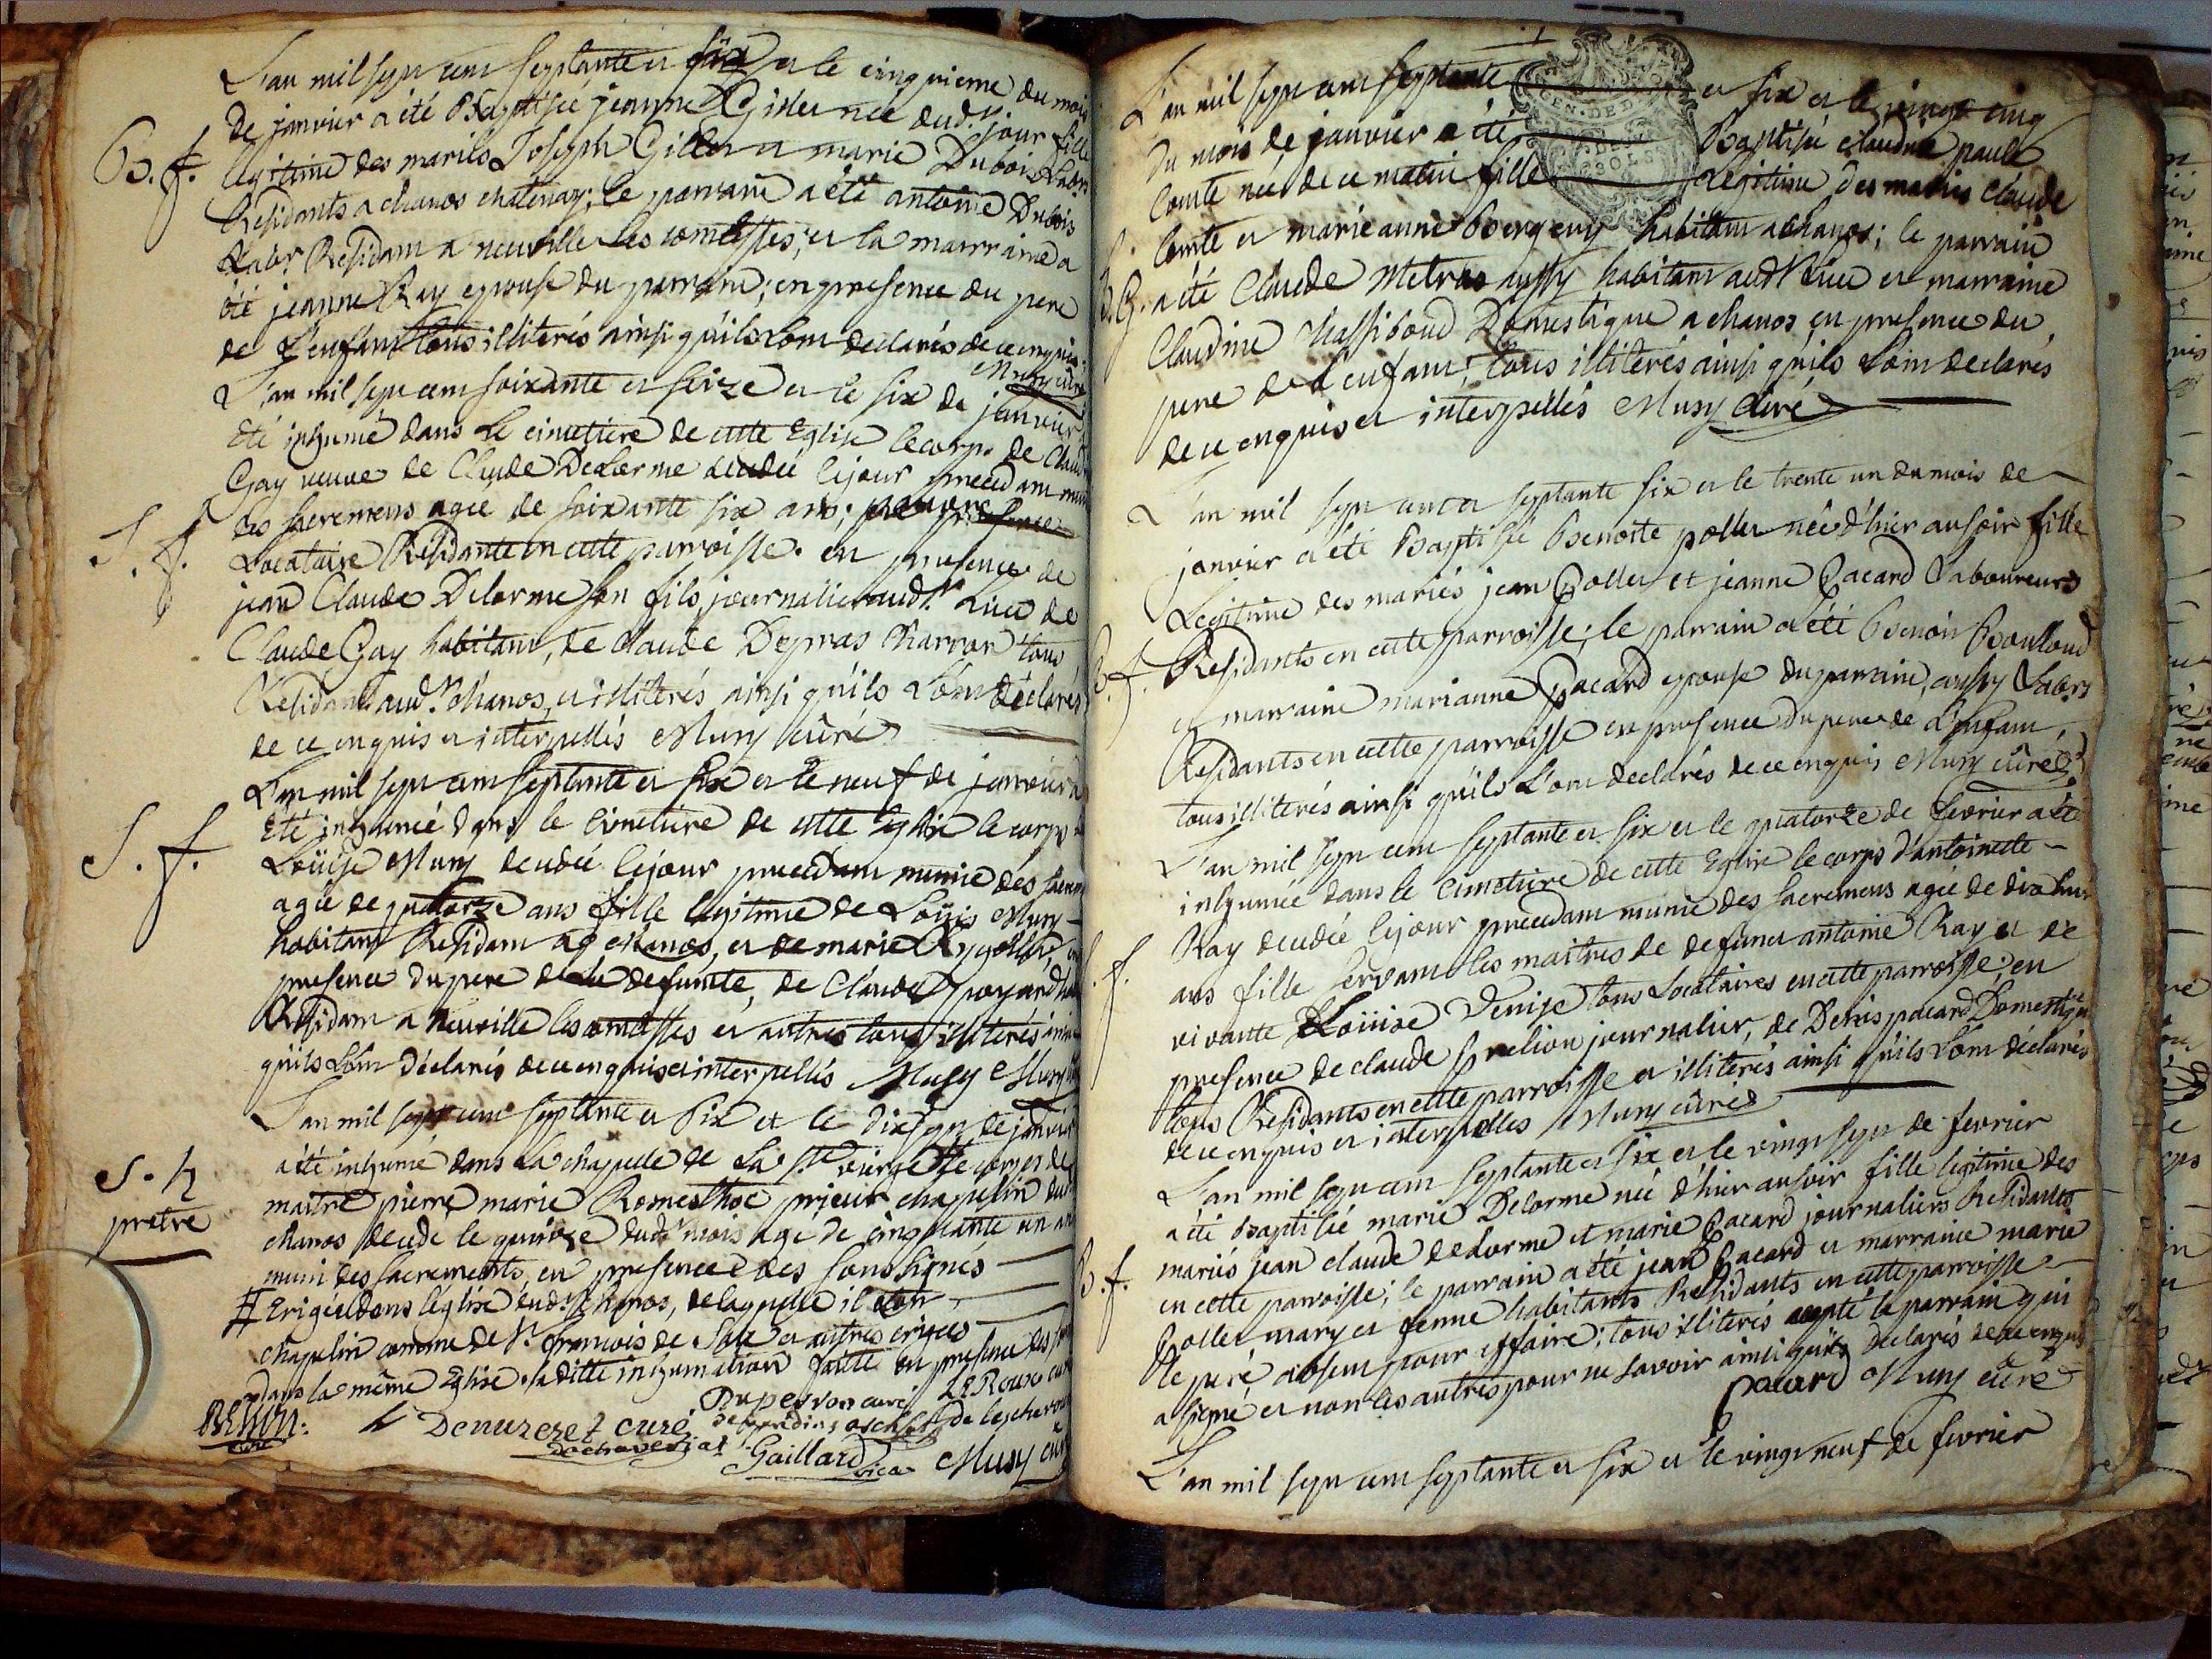 L'an mil sept cent septante et six et le cinquieme du mois
de janvier a été Baptisée jeanne Giller née dudt jour fille
B. f. legitime des mariés Joseph Giller et marie Dubois Labrs
Residants a chanos chatenay; le parrain a été antoine Dubois
Labr. Residant a neuville les comtesses; et la marraine a
été jeanne Ray epouse du parrain; en presence du pere
de L'enfant tous illiterés ainsi qu'ils L'ont declarés de ce enquis
Musy curé
L'an mil sept cent soixante et seize et le six de janvier a
été inhumé dans le cimetiere de cette Eglise le corps de Claud
Gay veuve de Claude Delorme decedée le jour precedant munie
des sacremens agée de soixante six ans; pauvre
S. f. Locataire Residante en cette parroisse. en presence de
jean Claude Delorme son fils, journalier audt Lieu de
Claude Gay habitant, de Claude Depras Charron tous
Residants audt chanos, et illiterés ainsi qu'ils L'ont déclarés
de ce enquis et interpellés Musy curé
L'an mil sept cent septante et six et le neuf de janvier a
été inhumée dans le cimetiere de cette Eglise le corps de
S. f. Loüise Musy decedée le jour precedant munie des sacrem
agée de quatorze ans fille legitime de Loüis Musy
habitant Residant a chanos, et de marie
presence du pere de la defunte, de Claude poyard
Residant a neuville les comtesses et autres tous illiterés ainsi
qu'ils L'ont déclarés de ce enquis et interpellés Musy Musy
L'an mil sept cent septante et six et le dix sept de janvier
S. h a été inhumé dans la chapelle de La Ste vierge # le corps de
pretre maitre pierre marie Romesthoc prieur chapelin dudt
chanos decedé le quinze dudt mois agé de cinquante un ans
muni des sacrements, en presence des soussignés
# Erigée dans l'eglise dudt chanos, de laquelle il etoit
chapelin comme de St francois de Sale et autres erigées
dans la même Eglise. la ditte inhumation faitte en presence des
Duperron curé Le Roux curé
Denuzeret curé
Gaillard vica Musy curé
L'an mil sept cent septante et six et le vingt cinq
du mois de janvier a été Baptisée claudine paule
Comte née de ce matin fille Legitime des mariés claude
Comte et marie anne Bergeny habitant a chanos; le parrain
a été Claude Metras aussy habitant audt Lieu et marraine
Claudine Chassiboud Domestique a chanos en presence du
pere de L'enfant, tous illiterés ainsi qu'ils L'ont declarés
de ce enquis et interpellés Musy Curé
L'an mil sept cent et septante six et le trente un du mois de
janvier a été Baptisée Benoite poller née d'hier au soir fille
Legitime des mariés jean Poller et jeanne Pacard Laboureurs
B. f. Residants en cette parroisse; le parrain a été Benoit Boulloud
et marraine marianne Pacard epouse du parrain, aussy Labrs
Residants en cette parroisse en presence du pere de L'enfant,
tous illiterés ainsi qu'ils L'ont declarés de ce enquis Musy curé
L'an mil sept cent septante et six et le quatorze de fevrier a été
inhumée dans le cimetiere de cette Eglise le corps d'antoinette
Ray decedée le jour precedant munie des sacremens agée de dix huit
S. f. ans fille servant les maitres de defunct antoine Ray et de
vivante Loüise Venise tous Locataires en cette parroisse, en
presence de claude prelion journalier, de Denis pacard Domestique
tous Residants en cette parroisse et illiterés ainsi qu'ils L'ont déclarés
de ce enquis et interpellés Musy curé
L'an mil sept cent septante et six et le vingt sept de fevrier
a été Baptisée marie Delorme née d'hier au soir fille legitime des
B. f. mariés jean claude delorme et marie Pacard journaliers Residants
en cette parroisse; le parrain a été jean Pacard et marraine marie
Poller mary et femme habitants Residants en cette parroisse
le peré absent pour affaire; tous illiterés excepté le parrain qui
a signé et non les autres pour ne savoir ainsi qu'ils declarés de ce enquis
pacard Musy curé
L'an mil sept cent septante et six et le vingt neuf de fevrier